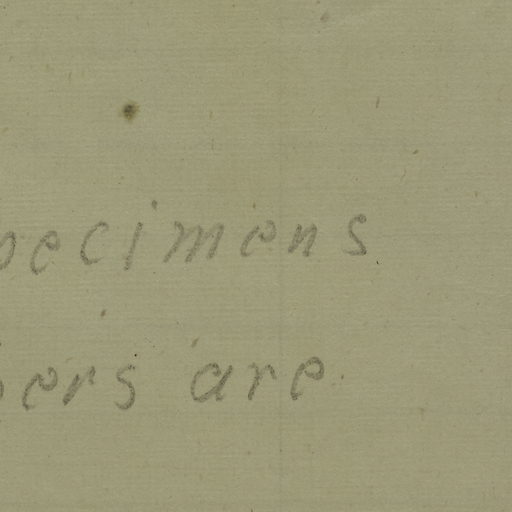 pecimens
ers are